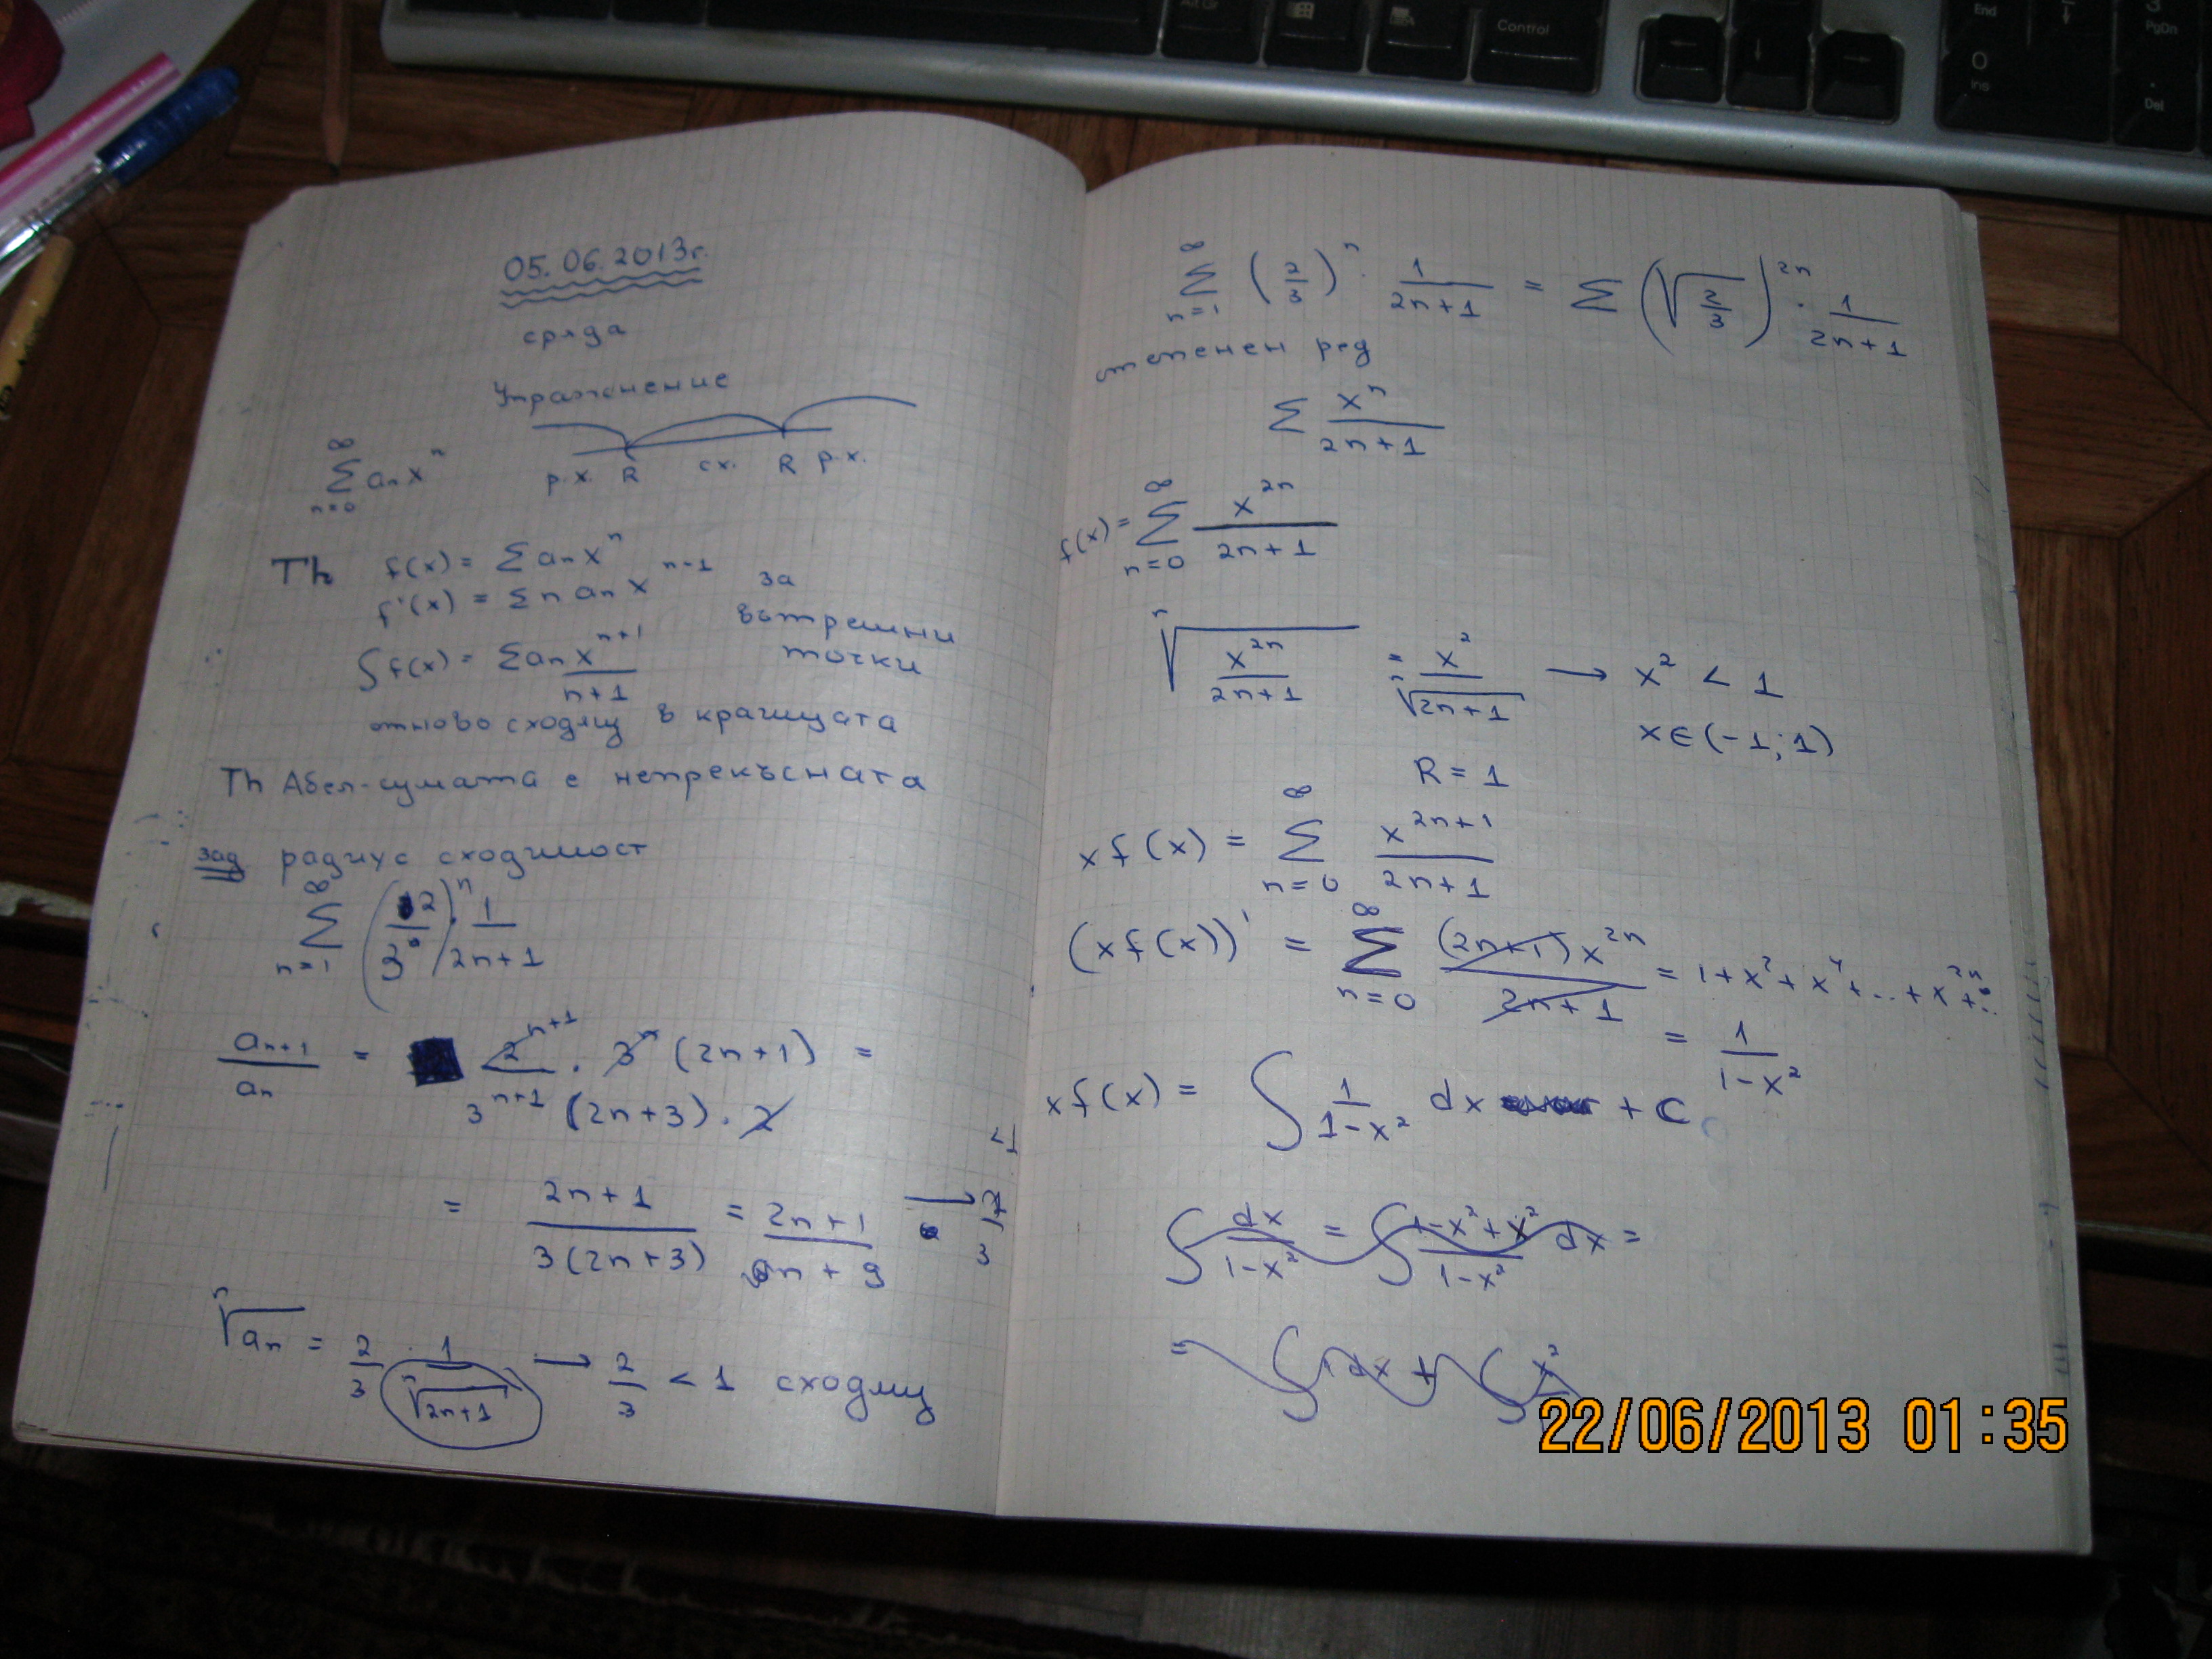 Alt Gr
Control
End
PgDn
0
Ins
.
Del
05.06.2013г.
сряда
Упражнение
∞
∑ aₙxⁿ
n=0
р.х. R сх. R р.х.
Th f(x) = ∑ aₙxⁿ
f'(x) = ∑ n aₙ xⁿ⁻¹ за
вътрешни
точки
∫f(x) = ∑ aₙxⁿ⁺¹ / n+1
отново сходящ в краищата
Th Абел-сумата е непрекъсната
зад радиус сходимост
∞
∑ (2/3)ⁿ · 1/2n+1
n=1
aₙ₊₁/aₙ = 2ⁿ⁺¹ · 3ⁿ (2n+1) / 3ⁿ⁺¹ (2n+3) · 2 =
= 2n+1 / 3(2n+3) = 2n+1 / 6n+9 →
<1
ⁿ√aₙ = 2/3 · 1/ⁿ√2n+1 → 2/3 < 1 сходящ
∞
∑ (2/3)ⁿ · 1/2n+1 = ∑ (√2/3)²ⁿ · 1/2n+1
n=1
степенен ред
∑ xⁿ/2n+1
∞
f(x) = ∑ x²ⁿ/2n+1
n=0
ⁿ√x²ⁿ/2n+1 = x²/ⁿ√2n+1 → x² < 1
x∈(-1;1)
R = 1
∞
xf(x) = ∑ x²ⁿ⁺¹/2n+1
n=0
∞
(xf(x))' = ∑ (2n+1)x²ⁿ/2n+1 = 1+x²+x⁴+..+x²ⁿ+..
n=0
= 1/1-x²
xf(x) = ∫ 1/1-x² dx + C
∫ dx/1-x² = ∫ 1-x²+x²/1-x² dx =
= ∫ 1dx + ∫ x²
22/06/2013 01:35